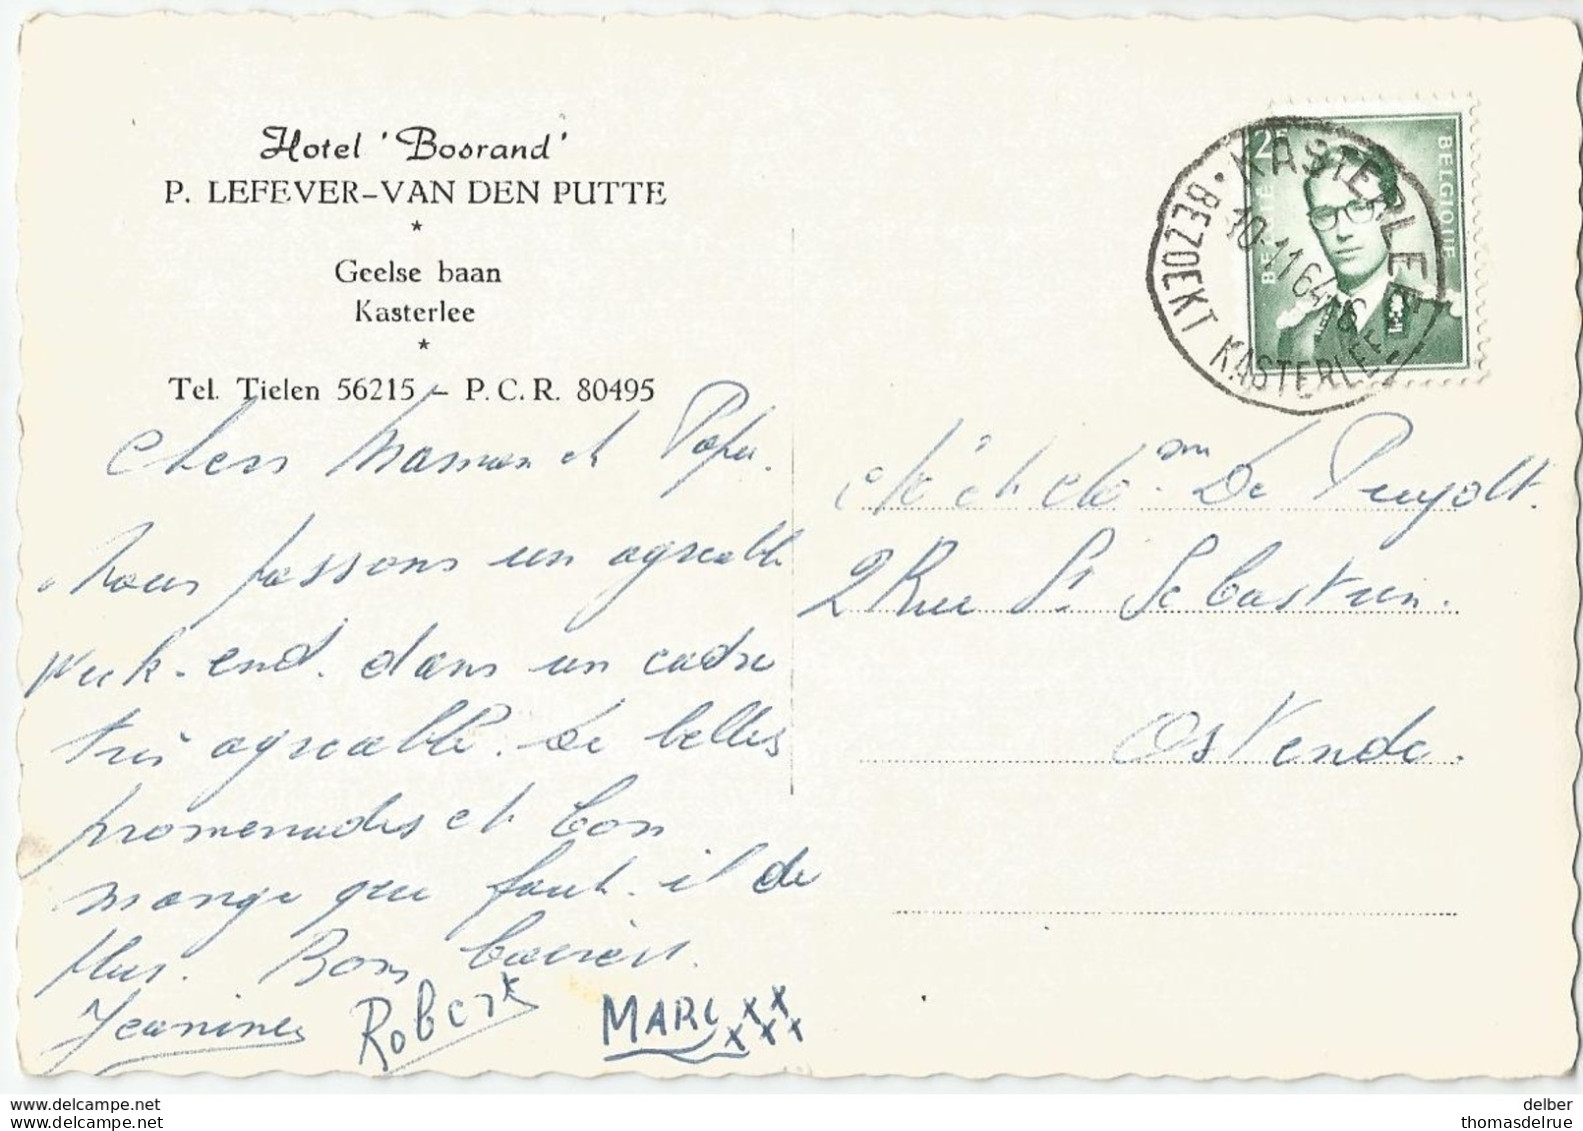 Hotel 'Bosrand'
P. LEFEVER-VAN DEN PUTTE
*
Geelse baan
Kasterlee
*
Tel. Tielen 56215 - P.C.R. 80495
2F
BELGIE
BELGIQUE
KASTERLEE
10-11 64
BEZOEKT KASTERLEE
Chers Maman et Papa.
Nous passons un agreable
week-end dans un cadre
très agreable. De belles
promenades et bon
manger que faut-il de
plus. Bons baisers.
Jeanine Robert MARC xxxxx
De Pruyolt.
2 Rue St Sebastien.
Ostende.
www.delcampe.net
delber
www.delcampe.net
thomasdelrue